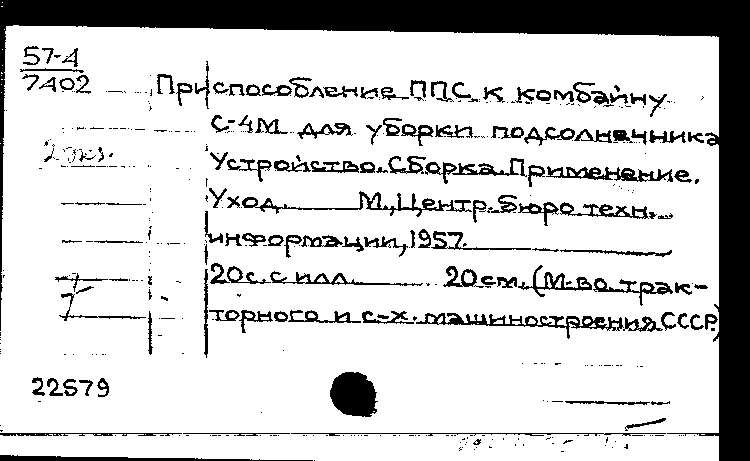 57-4
7402
Приспособление ППС к комбайну
С-4М для уборки подсолнечника
2 экз.
Устройство. Сборка. Применение.
Уход. М., Центр. бюро техн.
информации, 1957.
20с. с илл. 20см. (М-во трак-
торного и с-х. машиностроения СССР)
22579